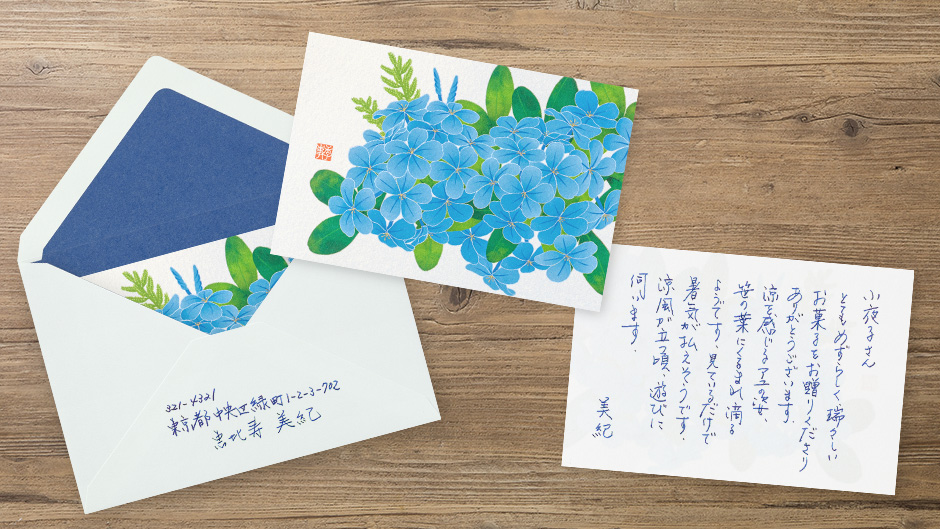 321-4321
東京都中央区緑町1-2-3-702
恵比寿 美紀
小夜子さん
とてもめずらしく、瑞々しい
お菓子をお贈りくださり
ありがとうございます。
涼を感じるアユの姿、
笹の葉にくるまれ、滴る
ようです。見ているだけで
暑気が払えそうです。
涼風が立つ頃、遊びに
伺います。
美紀